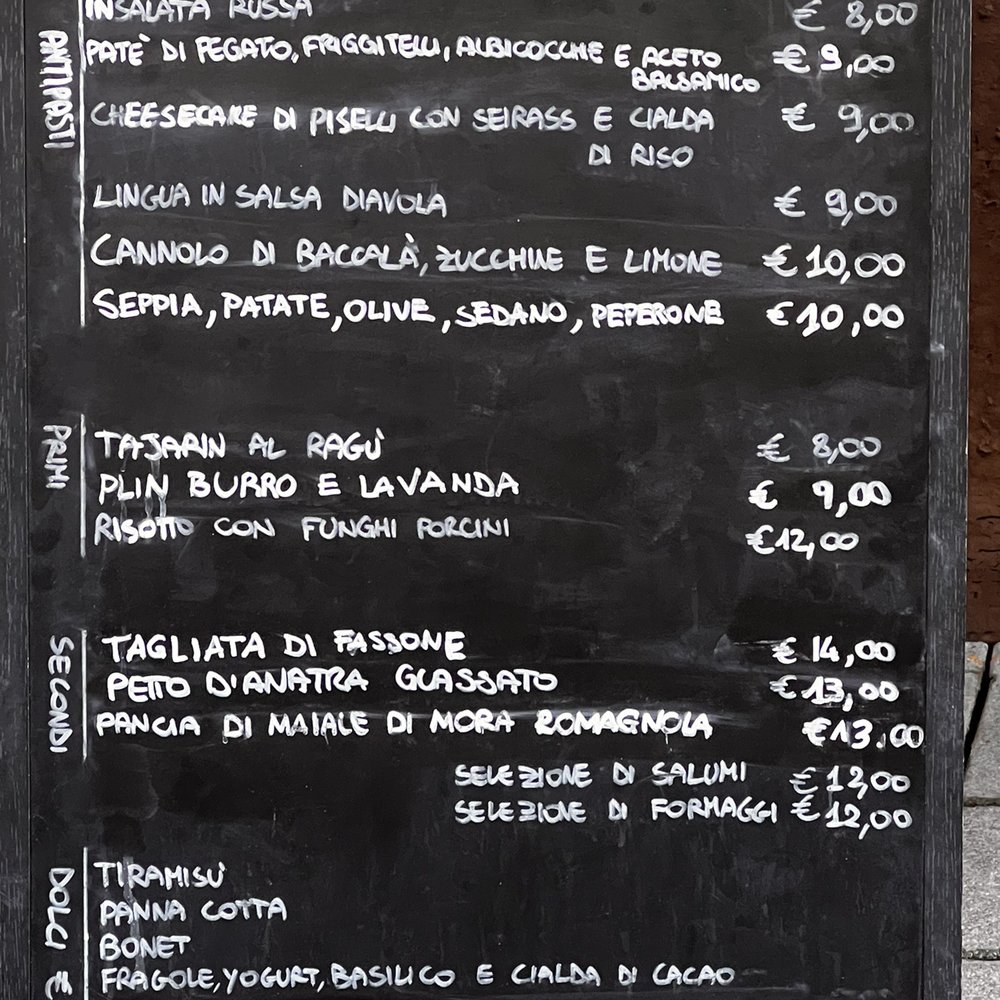 INSALATA RUSSA € 8,00
ANTIPASTI
PATÈ DI FEGATO, FRIGGITELLI, ALBICOCCHE E ACETO € 9,00
BALSAMICO
CHEESECAKE DI PISELLI CON SEIRASS E CIALDA € 9,00
DI RISO
LINGUA IN SALSA DIAVOLA € 9,00
CANNOLO DI BACCALÀ, ZUCCHINE E LIMONE € 10,00
SEPPIA, PATATE, OLIVE, SEDANO, PEPERONE € 10,00
PRIMI
TAJARIN AL RAGÙ € 8,00
PLIN BURRO E LAVANDA € 9,00
RISOTTO CON FUNGHI PORCINI € 12,00
SECONDI
TAGLIATA DI FASSONE € 14,00
PETTO D'ANATRA GLASSATO € 13,00
PANCIA DI MAIALE DI MORA ROMAGNOLA € 13.00
SELEZIONE DI SALUMI € 12,00
SELEZIONE DI FORMAGGI € 12,00
DOLCI €
TIRAMISÙ
PANNA COTTA
BONET
FRAGOLE, YOGURT, BASILICO E CIALDA DI CACAO